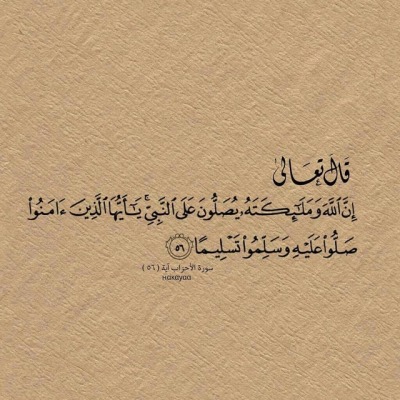 قال تعالى
إِنَّ ٱللَّهَ وَمَلَٰٓئِكَتَهُۥ يُصَلُّونَ عَلَى ٱلنَّبِيِّۚ يَٰٓأَيُّهَا ٱلَّذِينَ ءَامَنُوا۟
صَلُّوا۟ عَلَيْهِ وَسَلِّمُوا۟ تَسْلِيمًا ٥٦
سورة الأحزاب آية ( ٥٦ )
Hakayaa